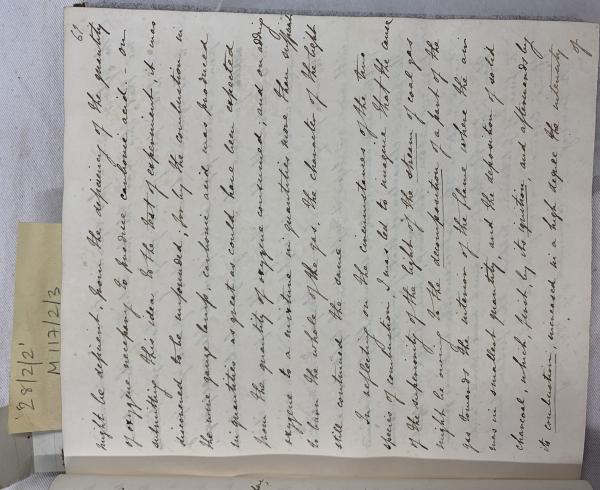 61
might be deficient, from the deficiency of the quantity
of oxygene necessary to produce carbonic acid; - on
submitting this idea to the test of experiment, it was
discovered to be unfounded, for by the combustion in
the wire gauze lamp carbonic acid was produced
in quantities as great as could have been expected
from the quantity of oxygene consumed; and on adding
oxygene to a mixture in quantities more than sufficient
to burn the whole of the gas, the character of the light
still continued the same.
In reflecting on the circumstances of the two
species of combustion, I was led to imagine that the cause
of the superiority of the light of the stream of coal gas
might be owing to the decomposition of a part of the
gas towards the interior of the flame where the air
was in smallest quantity, and the deposition of solid
charcoal, which first, by its ignition, and afterwards by
its combustion, increased in a high degree the intensity
of
'28/2/2'
M 117/2/3